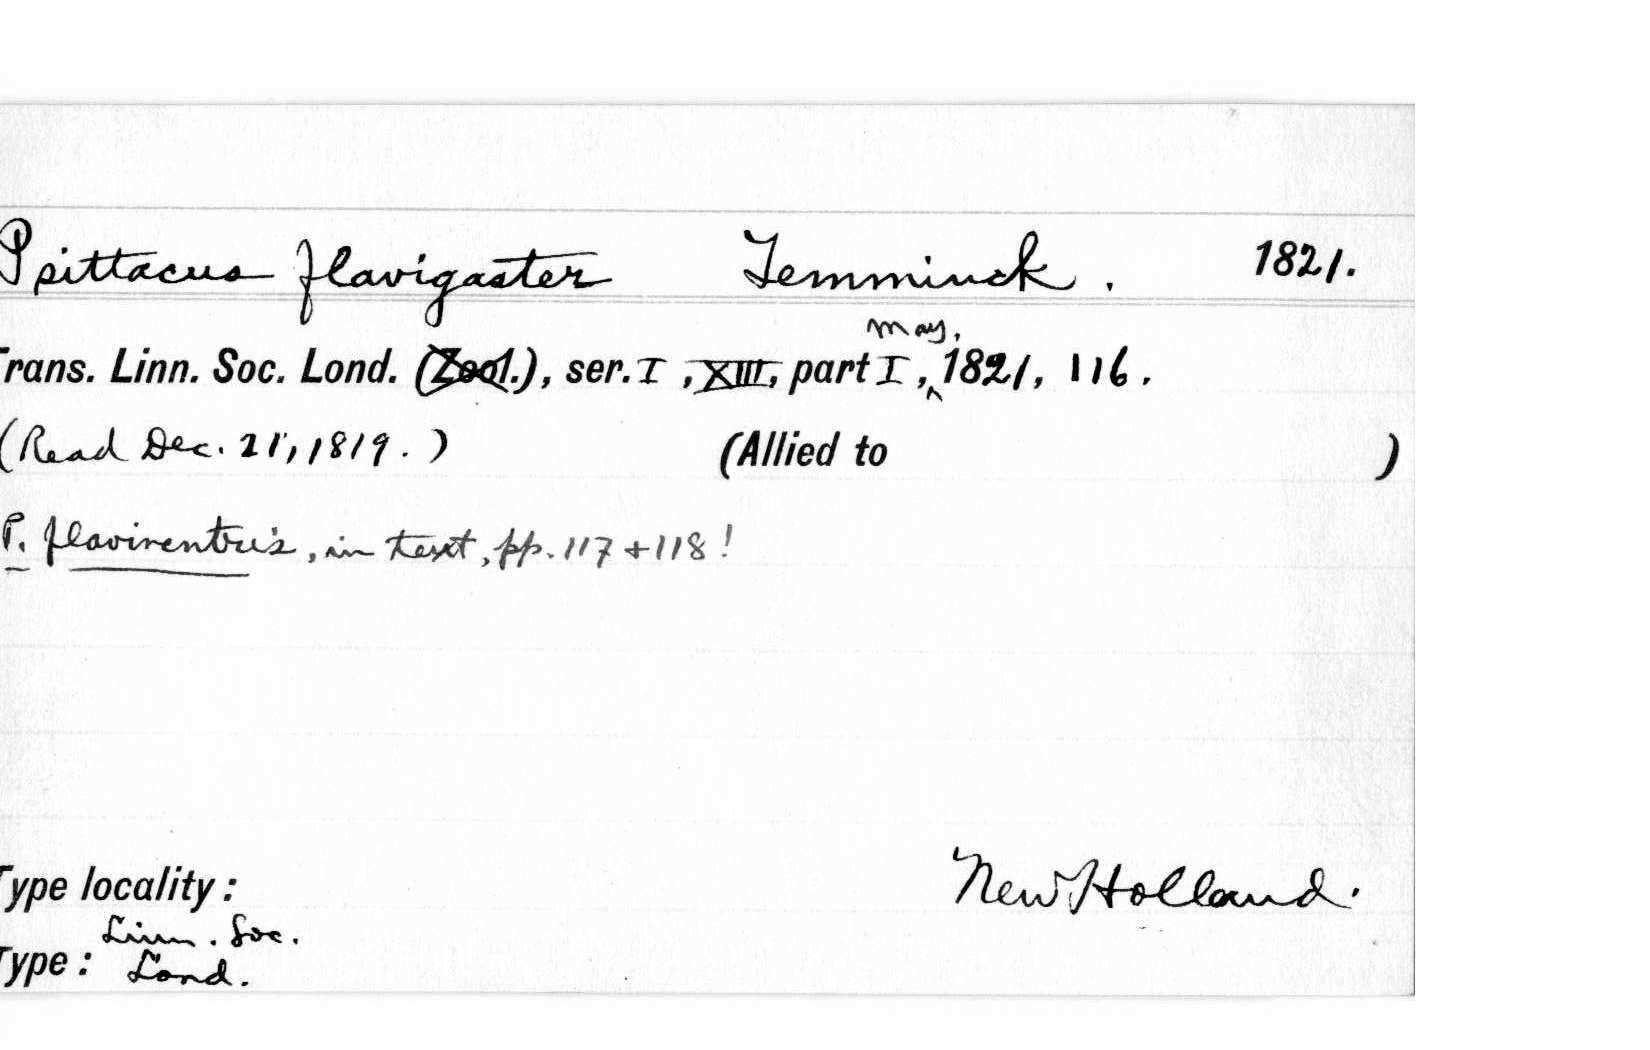 Psittacus flavigaster Temminck. 1821.
May,
Trans. Linn. Soc. Lond. (Zool.), ser. I, XIII, part I, 1821, 116.
(Read Dec. 21, 1819.) (Allied to )
P. flaviventris, in text, pp. 117 + 118!
Type locality: New Holland.
Linn. Soc.
Type: Lond.